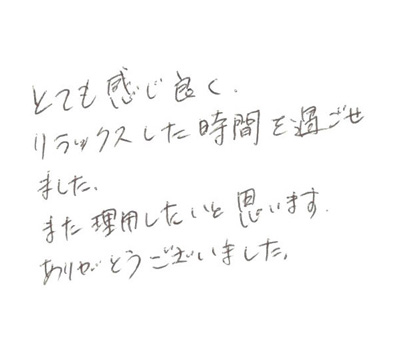 とても感じ良く、
リラックスした時間を過ごせ
ました。
また理用したいと思います。
ありがとうございました。